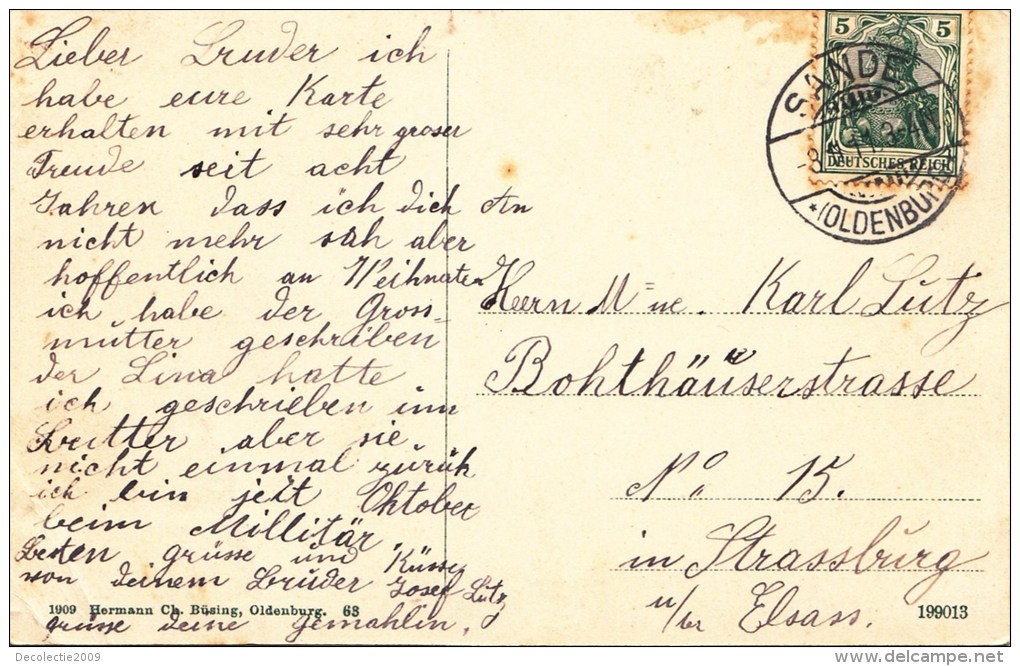 Lieber Bruder ich
habe eure Karte
erhalten mit sehr groser
Freude seit acht
Jahren dass ich dich
nicht mehr sah aber
hoffentlich an Weihnaten
ich habe der Gross-
mutter geschrieben
der Lina hatte
ich geschrieben um
Butter aber sie
nicht einmal zurük
ich bin jezt Oktober
beim Millitär.
Besten grüsse und Küsse
von deinem Bruder Josef Lutz
grüsse deine Gemahlin.
1909 Hermann Ch. Büsing, Oldenburg. 63
5 5
DEUTSCHES REICH
SANDE
*(OLDENBURG)
An
Herrn M=ne. Karl Lutz
Bohthäuserstrasse
No 15.
in Strassburg
Elsass.
199013
Decolectie2009
delcampe.net